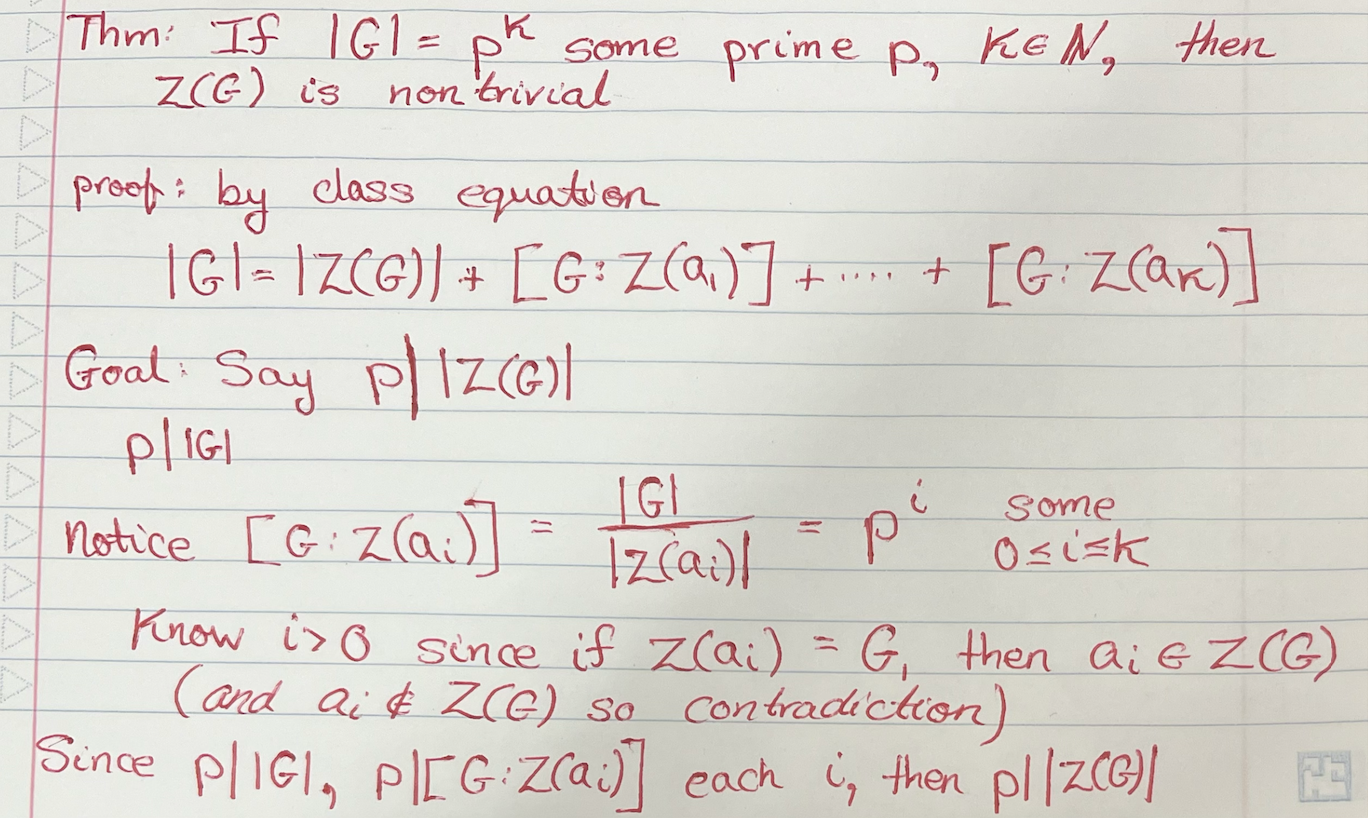 Thm: If |G| = p^k some prime p, k∈ℕ, then
Z(G) is nontrivial
proof: by class equation
|G| = |Z(G)| + [G:Z(a₁)] + ····· + [G:Z(aₖ)]
Goal: Say p | |Z(G)|
p | |G|
Notice [G:Z(aᵢ)] = |G| / |Z(aᵢ)| = p^i some 0≤i≤k
Know i>0 since if Z(aᵢ) = G, then aᵢ∈Z(G)
(and aᵢ∉Z(G) so contradiction)
Since p||G|, p|[G:Z(aᵢ)] each i, then p||Z(G)|